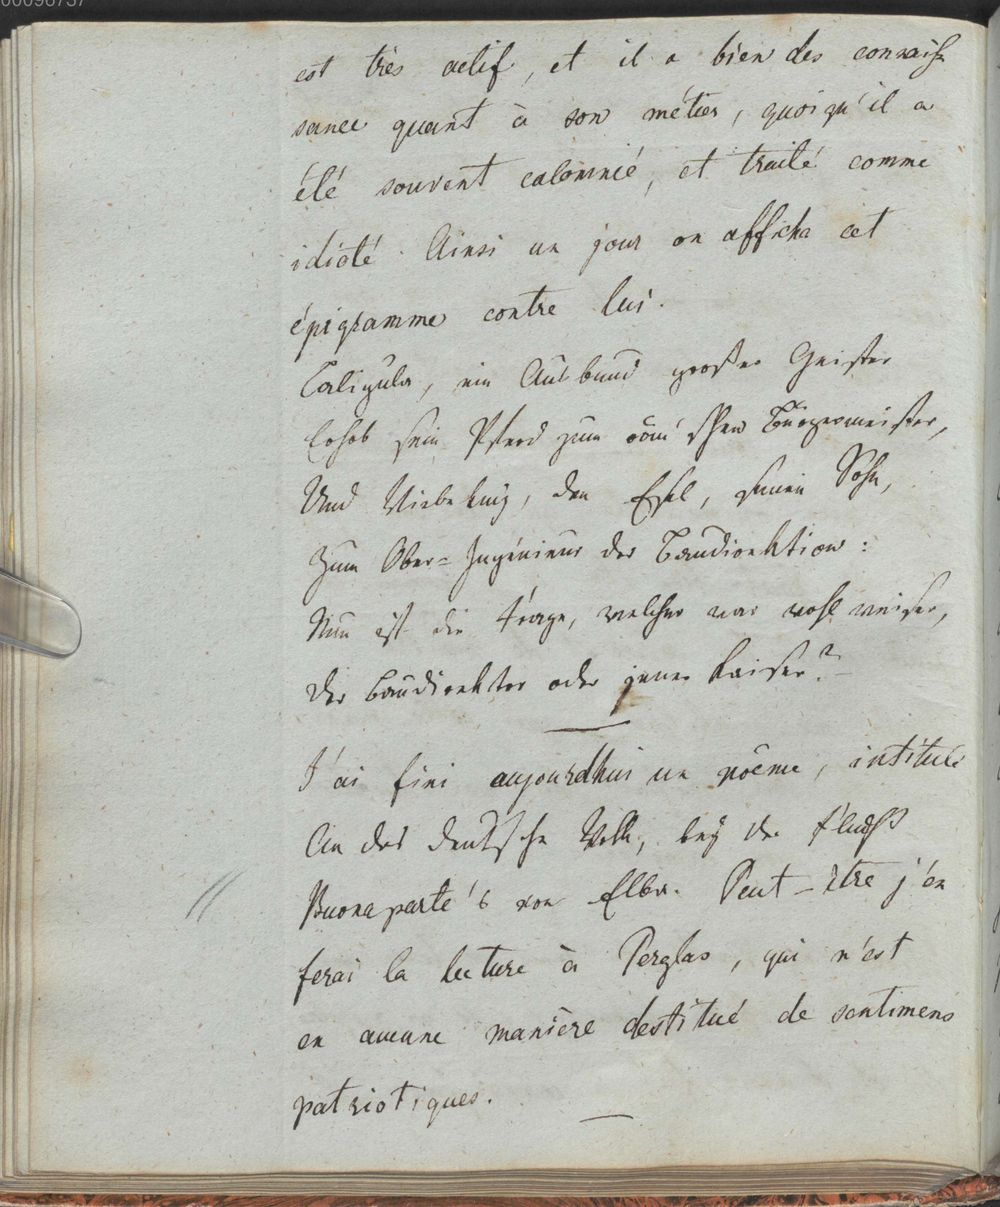 00096737
est très actif, et il a bien des connaiss
sance quant à son métier, quoiqu'il a
été souvent calomnié, et traité comme
idioté. Ainsi un jour on afficha cet
épigramme contre lui.
Caligula, ein Ausbund großer Geister
Erhob sein Pferd zum röm'schen Bürgermeister,
Und Wiebeking, den Esel, seinen Sohn,
Zum Ober-Ingénieur der Baudirektion:
Nun ist die Frage, welcher war wohl weiser,
Der Baudirektor oder jener Kaiser?
J'ai fini aujourdhui un poême, intitulé
An das deutsche Volk, bey der Flucht
Buonaparte's von Elba. Peut-être j'en
ferai la lecture à Perglas, qui n'est
en aucune manière destitué de sentimens
patriotiques.